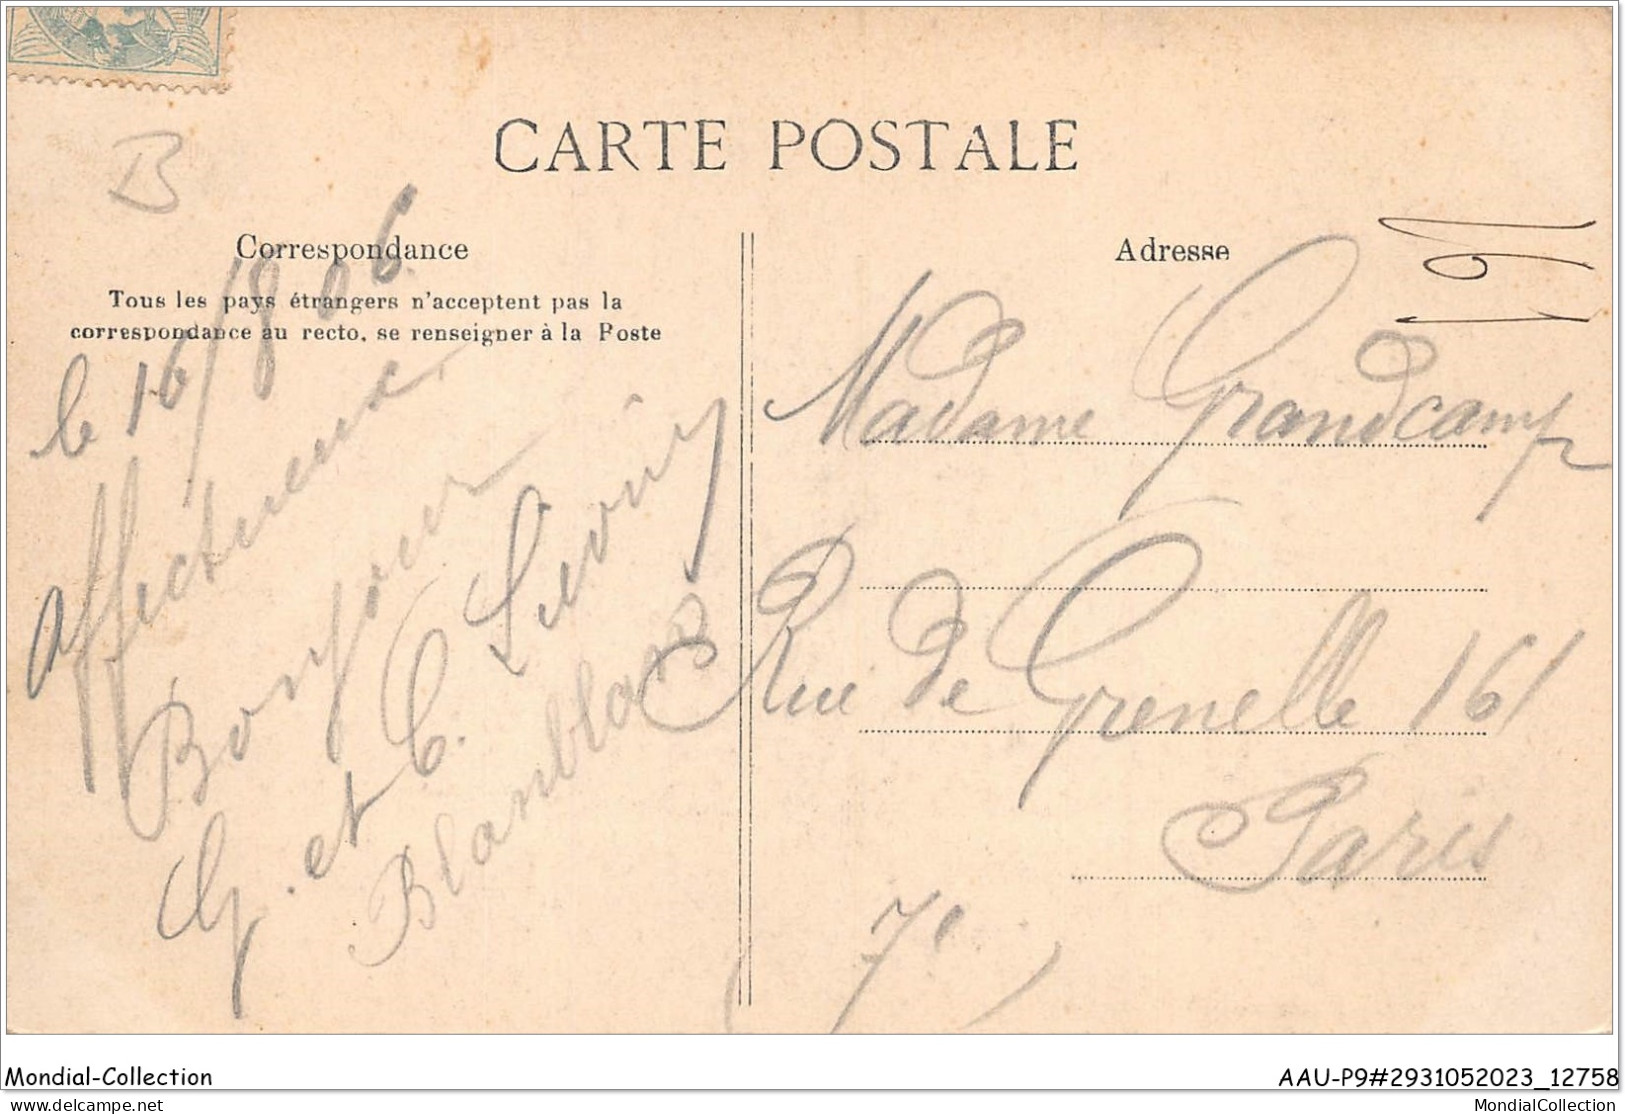 CARTE POSTALE
B
Correspondance
Tous les pays étrangers n'acceptent pas la
correspondance au recto, se renseigner à la Poste
le 16/8 06.
affectueux
Bonjour
G. et C.
Adresse
191
Madame Grandcamp
Rue de Grenelle 161
Paris
7e
Mondial-Collection
AAU-P9#2931052023_12758
delcampe.net
MondialCollection